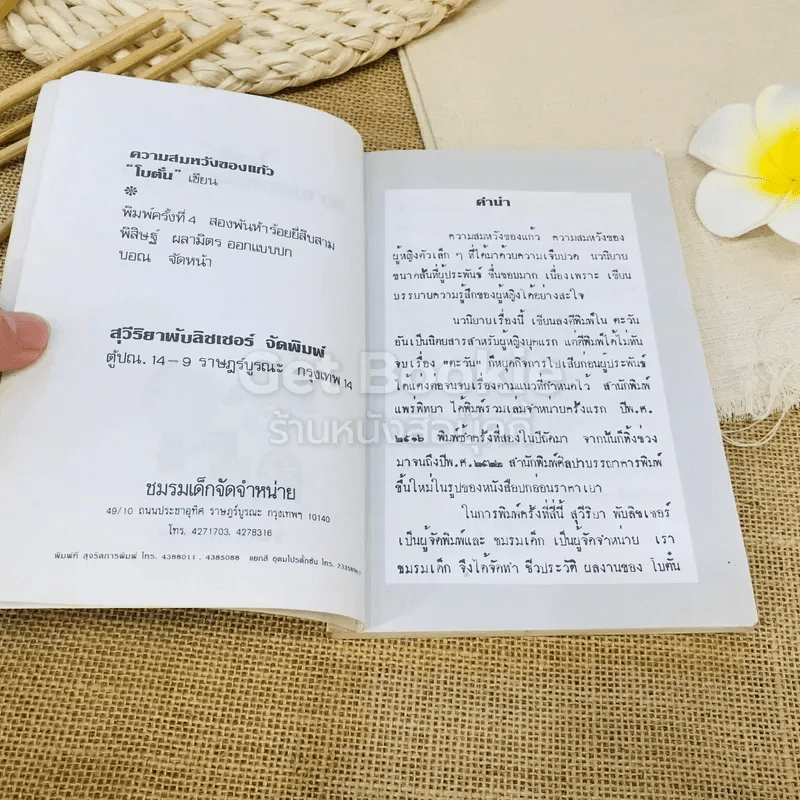 ความสมหวังของแก้ว
"โบตั๋น" เขียน
พิมพ์ครั้งที่ 4 สองพันห้าร้อยยี่สิบสาม
พิสิษฐ์ ผลามิตร ออกแบบปก
บอณ จัดหน้า
สุวีริยาพับลิชเชอร์ จัดพิมพ์
ตู้ปณ. 14-9 ราษฎร์บูรณะ กรุงเทพ 14
ชมรมเด็กจัดจำหน่าย
49/10 ถนนประชาอุทิศ ราษฎร์บูรณะ กรุงเทพฯ 10140
โทร. 4271703, 4278316
พิมพ์ที่ สุจริตการพิมพ์ โทร. 4388011, 4385088 แยกสี อุดมโปรดั๊กชั่น โทร.
คำนำ
ความสมหวังของแก้ว ความสมหวังของ
ผู้หญิงตัวเล็ก ๆ ที่ได้มาด้วยความเจ็บปวด นวนิยาย
ขนาดสั้นที่ผู้ประพันธ์ ชื่นชอบมาก เนื่องเพราะ เขียน
บรรยายความรู้สึกของผู้หญิงได้อย่างสะใจ
นวนิยายเรื่องนี้ เขียนลงตีพิมพ์ใน ตะวัน
อันเป็นนิตยสารสำหรับผู้หญิงยุคแรก แต่ตีพิมพ์ได้ไม่ทัน
จบเรื่อง "ตะวัน" ก็หยุดกิจการไปเสียก่อนผู้ประพันธ์
ได้แต่งต่อจนจบเรื่องตามแนวที่กำหนดไว้ สำนักพิมพ์
แพร่พิทยา ได้พิมพ์รวมเล่มจำหน่ายครั้งแรก ปีพ.ศ.
๒๕๑๖ พิมพ์ซ้ำครั้งที่สองในปีถัดมา จากนั้นก็ทิ้งช่วง
มาจนถึงปีพ.ศ.๒๕๒๒ สำนักพิมพ์ศิลปาบรรณาคารพิมพ์
ขึ้นใหม่ในรูปของหนังสือปกอ่อนราคาเยา
ในการพิมพ์ครั้งที่สี่นี้ สุวีริยา พับลิชเชอร์
เป็นผู้จัดพิมพ์และ ชมรมเด็ก เป็นผู้จัดจำหน่าย เรา
ชมรมเด็ก จึงได้จัดทำ ชีวประวัติ ผลงานของ โบตั๋น
Get Bookie
ร้านหนังสือยุคดี